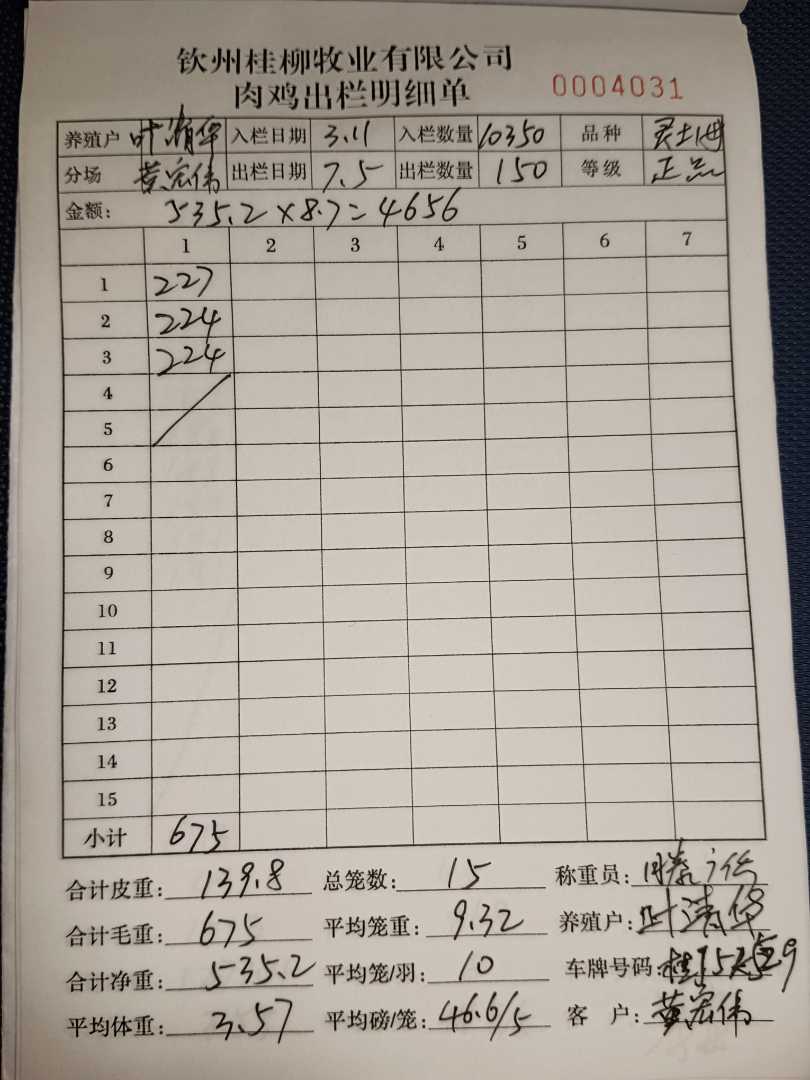 钦州桂柳牧业有限公司
肉鸡出栏明细单 0004031
养殖户 叶清华 入栏日期 3.11 入栏数量 10350 品种
分场 黄宏伟 出栏日期 7.5 出栏数量 150 等级 正品
金额: 535.2×8.7=4656
1 2 3 4 5 6 7
1 227
2 224
3 224
4
5
6
7
8
9
10
11
12
13
14
15
小计 675
合计皮重: 139.8 总笼数: 15 称重员:
合计毛重: 675 平均笼重: 9.32 养殖户: 叶清华
合计净重: 535.2 平均笼/羽: 10 车牌号码:
平均体重: 3.57 平均磅/笼: 46.6/5 客 户: 黄宏伟